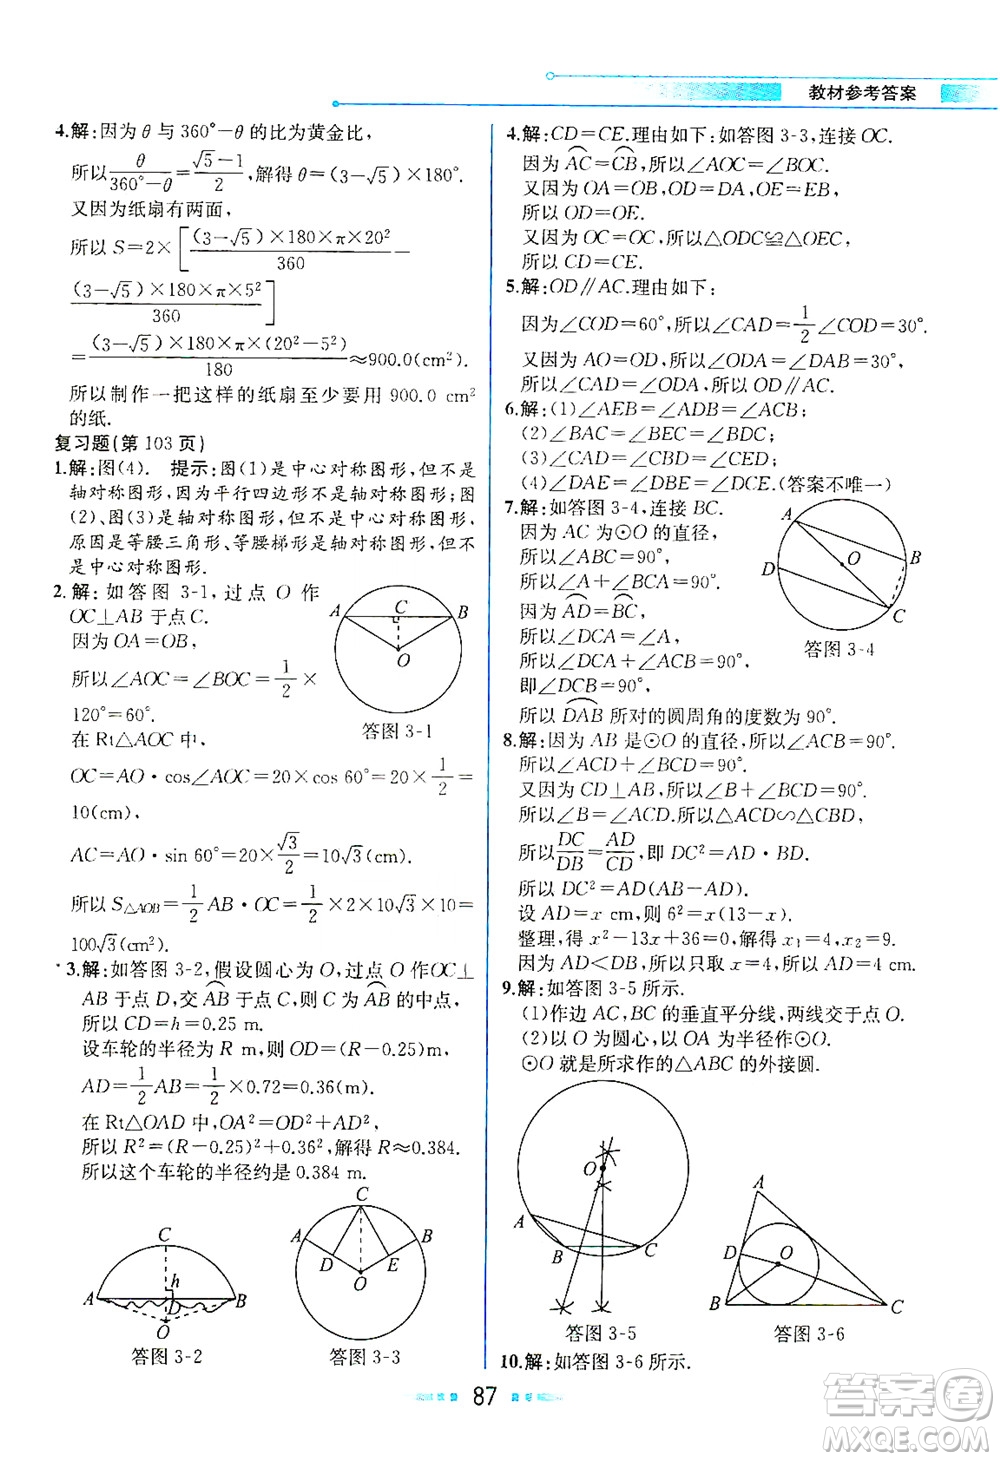 教材参考答案
4.解:因为θ与360°-θ的比为黄金比,
所以θ/(360°-θ)=(√5-1)/2,解得θ=(3-√5)×180°.
又因为纸扇有两面,
所以S=2×[(3-√5)×180×π×20²/360-
(3-√5)×180×π×5²/360]
=(3-√5)×180×π×(20²-5²)/180≈900.0(cm²)
所以制作一把这样的纸扇至少要用900.0 cm²
的纸.
复习题(第103页)
1.解:图(4). 提示:图(1)是中心对称图形,但不是
轴对称图形,因为平行四边形不是轴对称图形;图
(2)、图(3)是轴对称图形,但不是中心对称图形,
原因是等腰三角形、等腰梯形是轴对称图形,但不
是中心对称图形.
2.解:如答图3-1,过点O作
OC⊥AB于点C.
因为OA=OB,
所以∠AOC=∠BOC=1/2×
120°=60°.
在Rt△AOC中,
OC=AO·cos∠AOC=20×cos 60°=20×1/2=
10(cm),
AC=AO·sin 60°=20×√3/2=10√3(cm).
所以S△AOB=1/2AB·OC=1/2×2×10√3×10=
100√3(cm²)
A
C
B
O
答图3-1
3.解:如答图3-2,假设圆心为O,过点O作OC⊥
AB于点D,交AB⌒于点C,则C为AB⌒的中点,
所以CD=h=0.25 m.
设车轮的半径为R m,则OD=(R-0.25)m.
AD=1/2AB=1/2×0.72=0.36(m)
在Rt△OAD中,OA²=OD²+AD²,
所以R²=(R-0.25)²+0.36²,解得R≈0.384.
所以这个车轮的半径约是0.384 m.
C
h
A
D
B
O
答图3-2
C
A
B
D
E
O
答图3-3
4.解:CD=CE.理由如下:如答图3-3,连接OC.
因为AC⌒=CB⌒,所以∠AOC=∠BOC.
又因为OA=OB,OD=DA,OE=EB,
所以OD=OE.
又因为OC=OC,所以△ODC≌△OEC,
所以CD=CE.
5.解:OD∥AC.理由如下:
因为∠COD=60°,所以∠CAD=1/2∠COD=30°.
又因为AO=OD,所以∠ODA=∠BAD=30°,
所以∠CAD=∠ODA,所以OD∥AC.
6.解:(1)∠AEB=∠ADB=∠ACB;
(2)∠BAC=∠BEC=∠BDC;
(3)∠CAD=∠CBD=∠CED;
(4)∠DAE=∠DBE=∠DCE.(答案不唯一)
7.解:如答图3-4,连接BC.
因为AC为⊙O的直径,
所以∠ABC=90°,
所以∠A+∠BCA=90°.
因为AD⌒=BC⌒,
所以∠DCA=∠A,
所以∠DCA+∠BCA=90°,
即∠DCB=90°,
所以DAB⌒所对的圆周角的度数为90°.
A
B
O
D
C
答图3-4
8.解:因为AB是⊙O的直径,所以∠ACB=90°.
所以∠ACD+∠BCD=90°.
又因为CD⊥AB,所以∠B+∠BCD=90°.
所以∠B=∠ACD.所以△ACD∽△CBD,
所以DC/DB=AD/CD,即DC²=AD·BD.
所以DC²=AD(AB-AD).
设AD=x cm,则6²=x(13-x).
整理,得x²-13x+36=0,解得x₁=4,x₂=9.
因为AD<DB,所以只取x=4,所以AD=4 cm.
9.解:如答图3-5所示.
(1)作边AC,BC的垂直平分线,两线交于点O.
(2)以O为圆心,以OA为半径作⊙O.
⊙O就是所求作的△ABC的外接圆.
O
A
B
C
答图3-5
A
D
O
B
C
答图3-6
10.解:如答图3-6所示.
87
答案圈
MXQE.COM